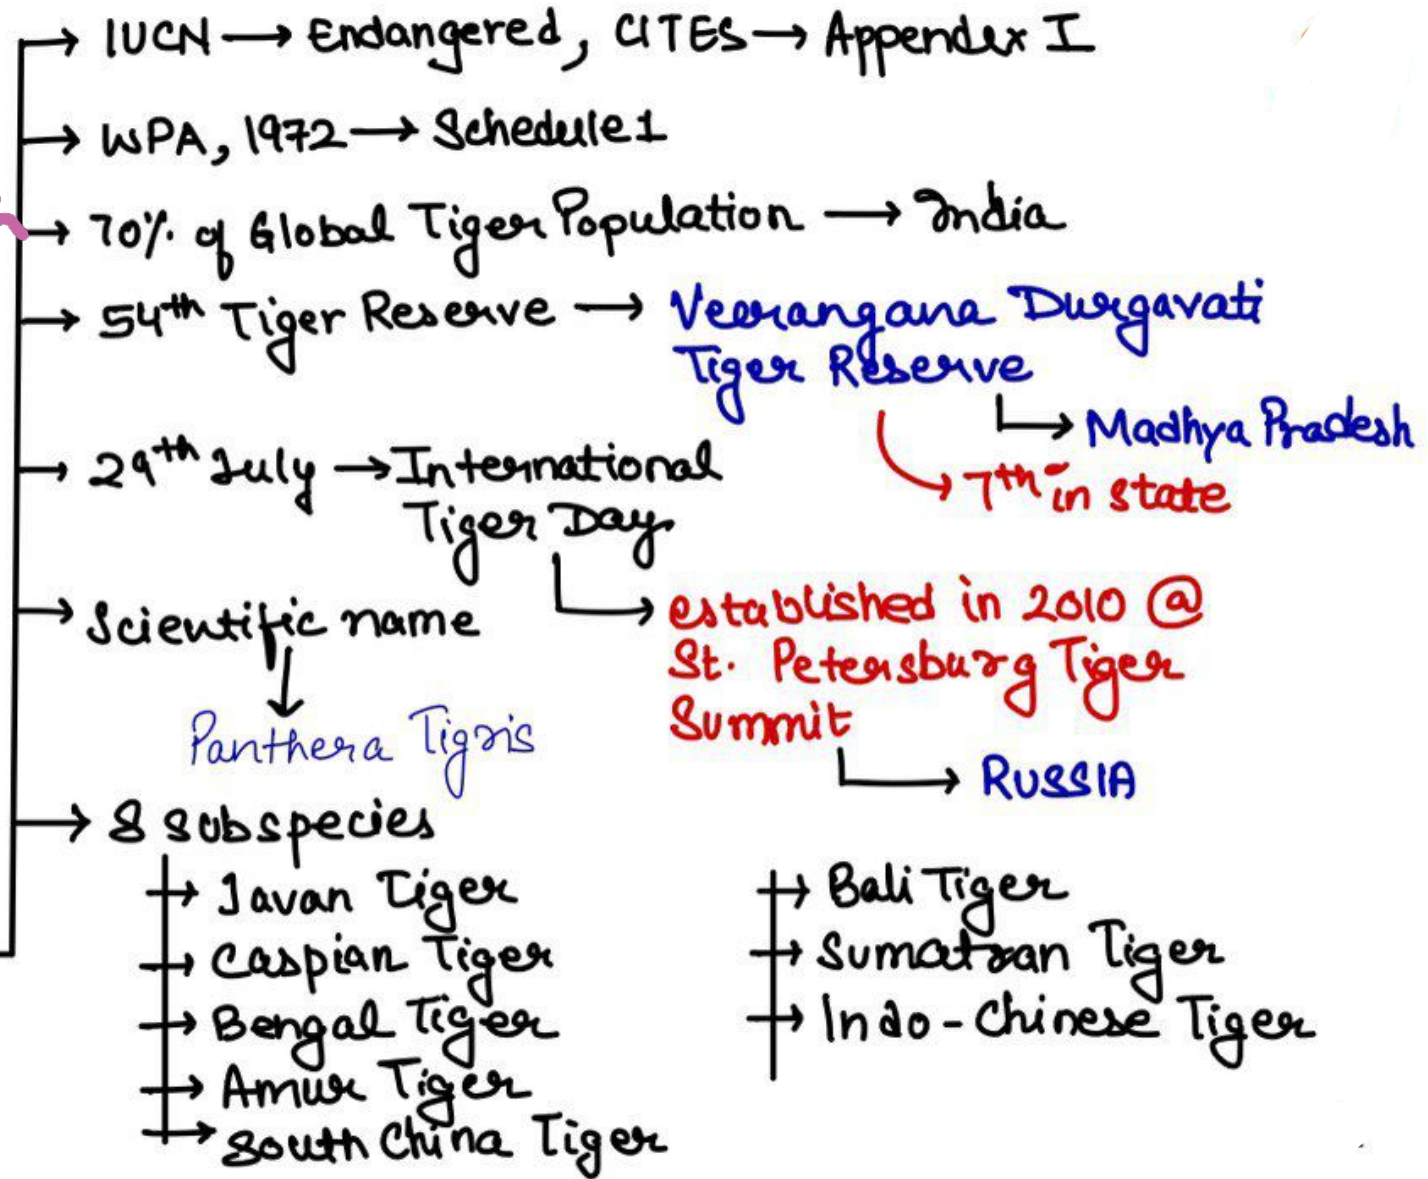 → IUCN → Endangered, CITES → Appendex I
→ WPA, 1972 → Schedule 1
→ 70% of Global Tiger Population → India
→ 54th Tiger Reserve → Veerangana Durgavati
Tiger Reserve
→ Madhya Pradesh
→ 7th in state
→ 29th July → International
Tiger Day
→ established in 2010 @
St. Petersburg Tiger
Summit
→ RUSSIA
→ Scientific name
Panthera Tigris
→ 8 subspecies
→ Javan Tiger
→ Caspian Tiger
→ Bengal Tiger
→ Amur Tiger
→ South China Tiger
→ Bali Tiger
→ Sumatran Tiger
→ Indo-Chinese Tiger